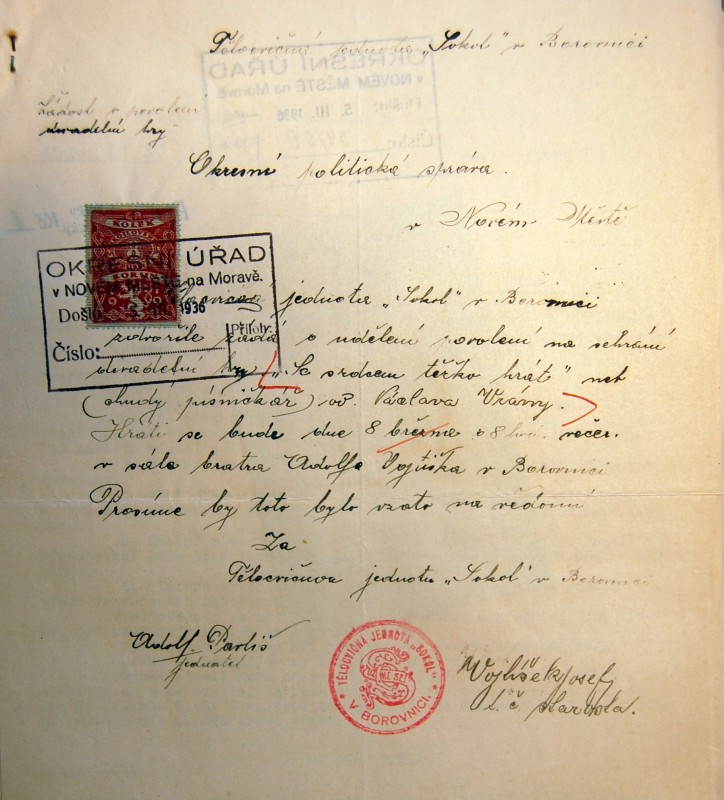 Tělocvičná jednota „Sokol" v Borovnici
Žádost o povolení
divadelní hry
Okresní politická správa.
v Novém Městě
KOLEK
KORUN
OKRESNÍ ÚŘAD
v NOVÉM MĚSTĚ na Moravě.
Došlo: 5. III. 1936
Číslo: Přílohy:
Tělocvičná jednota „Sokol" v Borovnici
zdvořile žádá o udělení povolení na sehrání
divadelní hry „Se srdcem těžko hrát" neb
(chudý písničkář) od Václava Vrany.
Hráti se bude dne 8 března o 8 hod. večer.
v sále bratra Adolfa Vojtíška v Borovnici
Prosíme by toto bylo vzato na vědomí
Za
Tělocvičnou jednotu „Sokol" v Borovnici
Adolf. Pavliš
jednatel
TĚLOCVIČNÁ JEDNOTA „SOKOL"
V BOROVNICI.
Vojtíšek Josef
t. č. starosta.